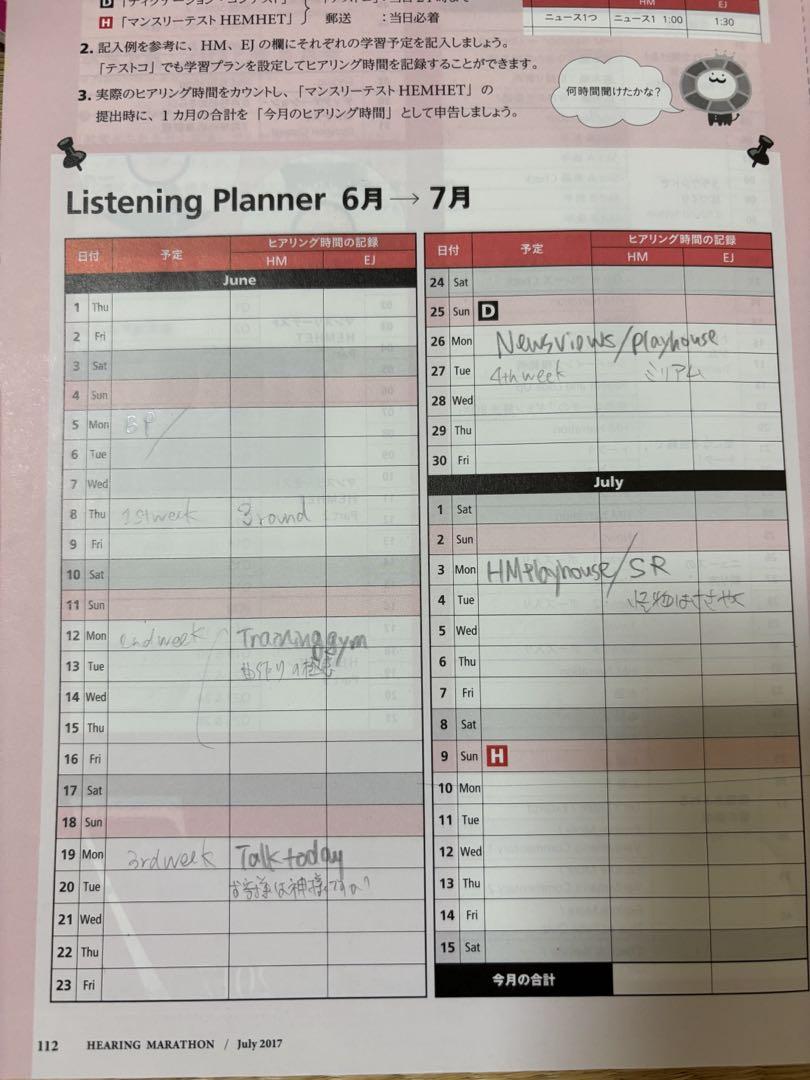 D「ディクテーション・コンテスト」
H「マンスリーテスト HEMHET」 郵送 :当日必着
HM EJ
ニュース1つ ニュース1 1:00 1:30
2. 記入例を参考に、HM、EJの欄にそれぞれの学習予定を記入しましょう。
「テストコ」でも学習プランを設定してヒアリング時間を記録することができます。
3. 実際のヒアリング時間をカウントし、「マンスリーテスト HEMHET」の
提出時に、1カ月の合計を「今月のヒアリング時間」として申告しましょう。
何時間聞けたかな?
Listening Planner 6月→7月
日付 予定 ヒアリング時間の記録
HM EJ
June
1 Thu
2 Fri
3 Sat
4 Sun
5 Mon BP
6 Tue
7 Wed
8 Thu 1st week 3 round
9 Fri
10 Sat
11 Sun
12 Mon 2nd week Training gym
13 Tue 曲作りの
14 Wed
15 Thu
16 Fri
17 Sat
18 Sun
19 Mon 3rd week Talk today
20 Tue お客様は神様ですか?
21 Wed
22 Thu
23 Fri
日付 予定 ヒアリング時間の記録
HM EJ
24 Sat
25 Sun D
26 Mon Newsviews/playhouse
27 Tue 4th week ミリアム
28 Wed
29 Thu
30 Fri
July
1 Sat
2 Sun
3 Mon HMplayhouse/SR
4 Tue 怪物はささやく
5 Wed
6 Thu
7 Fri
8 Sat
9 Sun H
10 Mon
11 Tue
12 Wed
13 Thu
14 Fri
15 Sat
今月の合計
112 HEARING MARATHON / July 2017